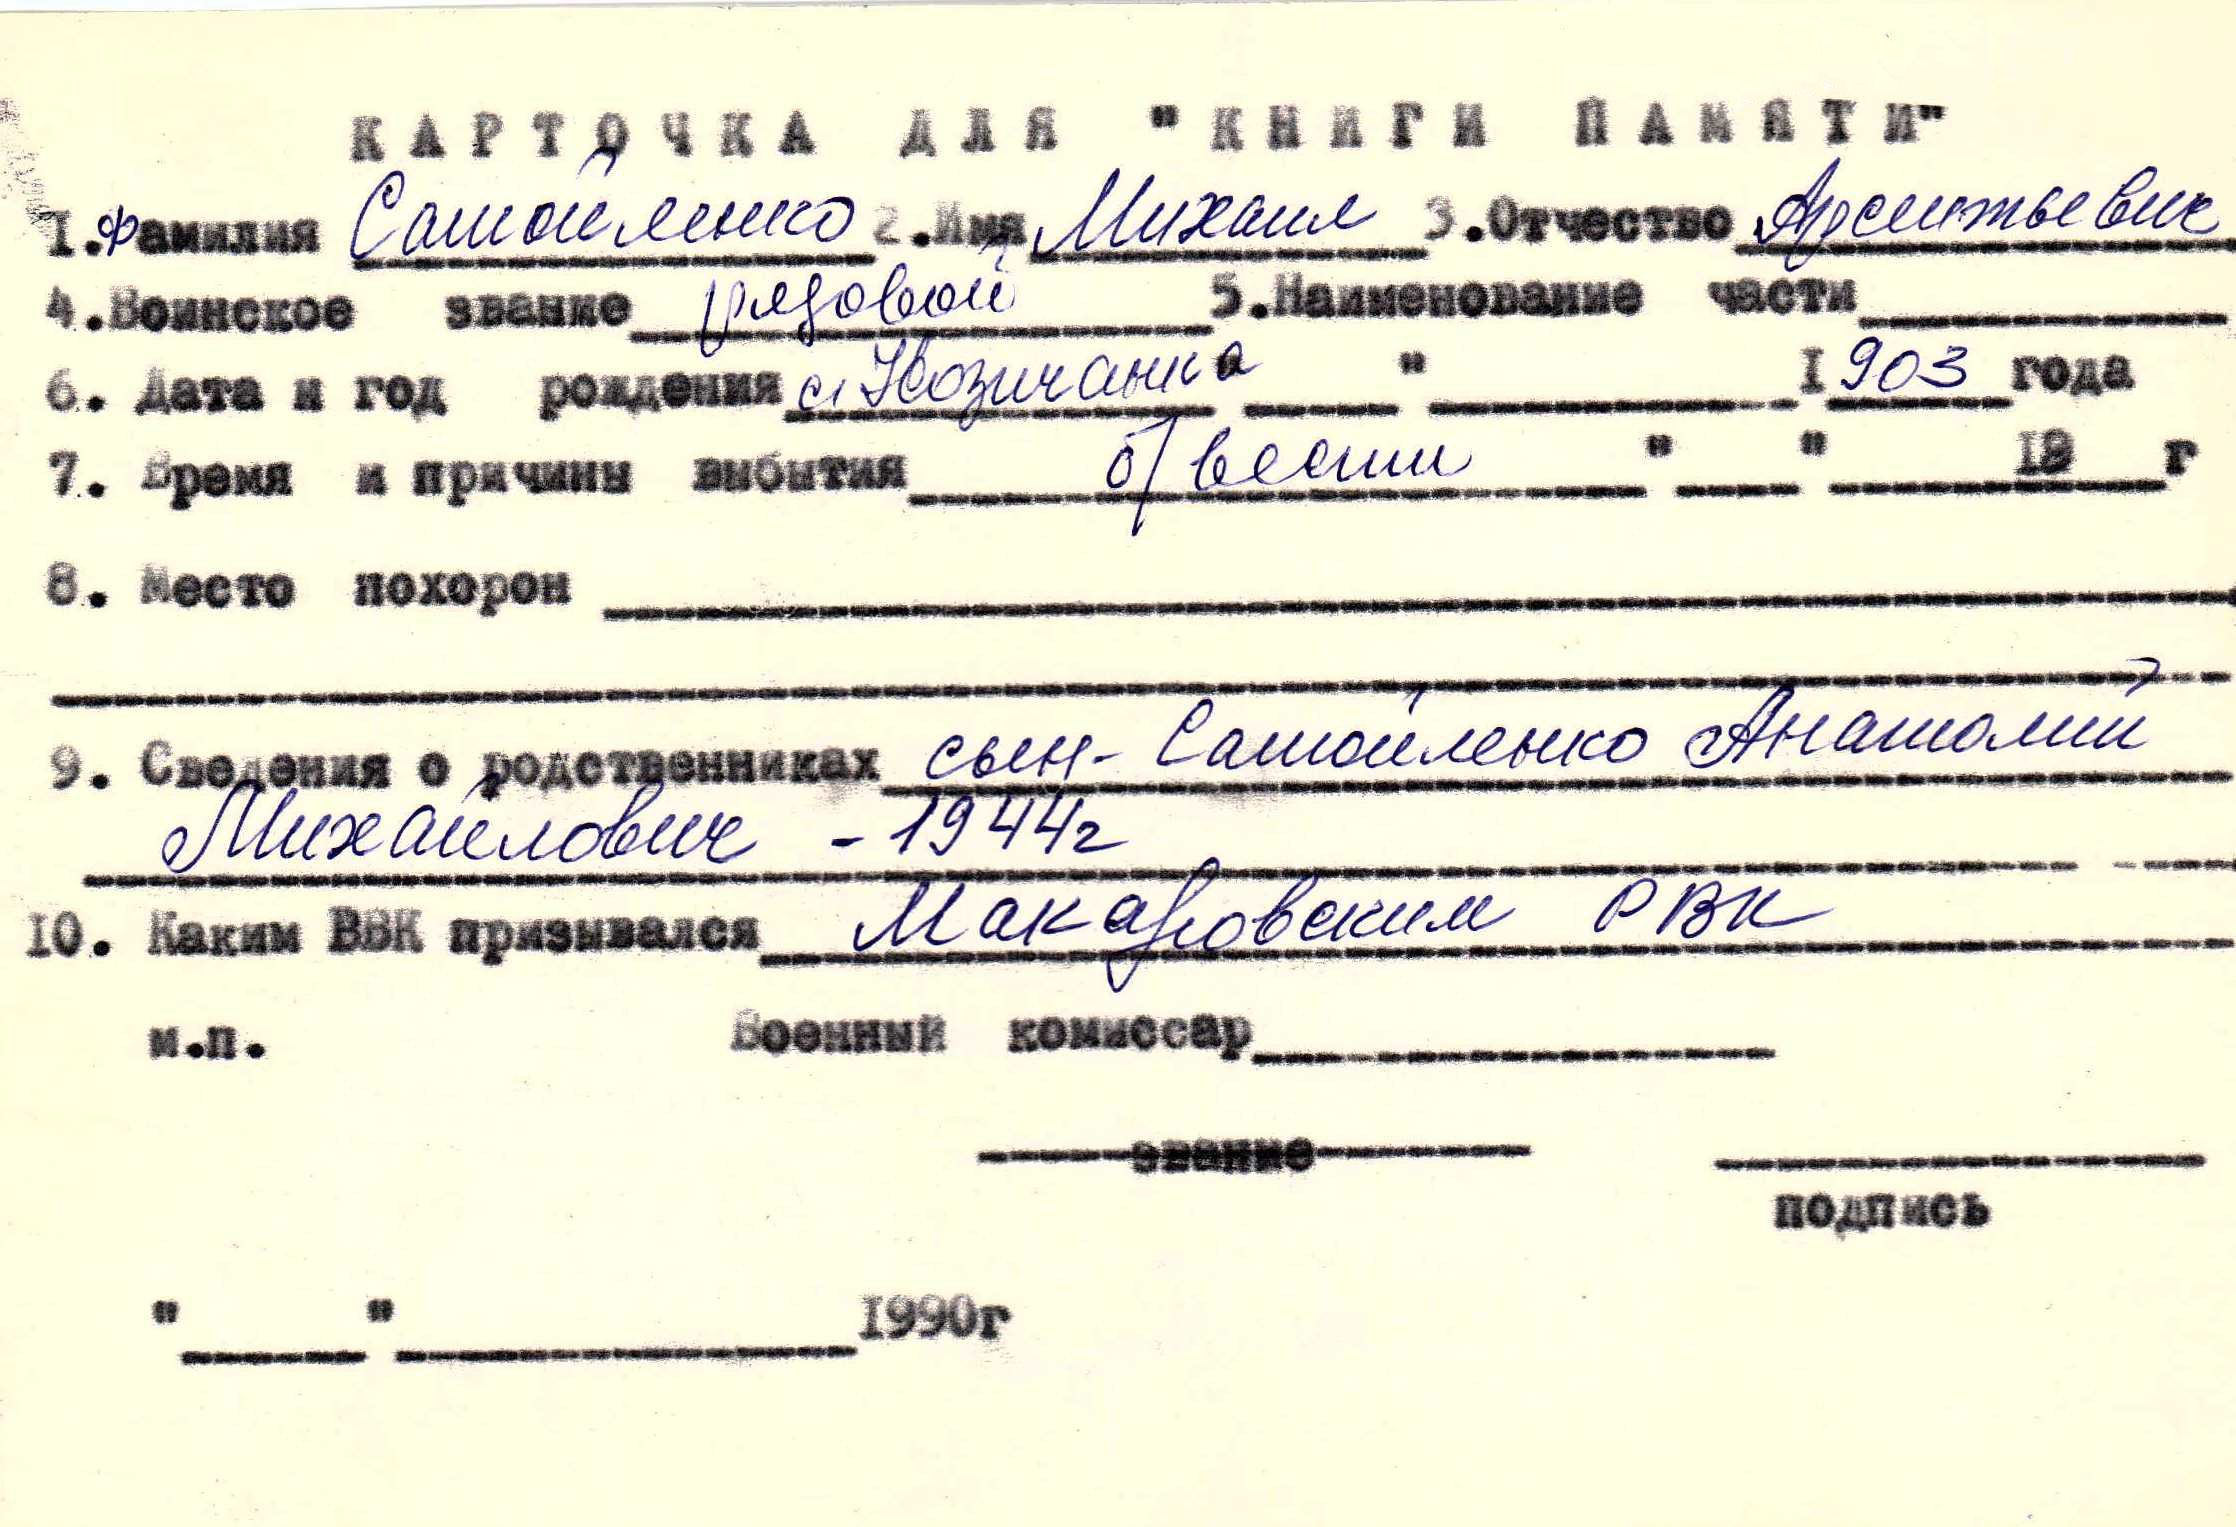 КАРТОЧКА ДЛЯ "КНИГИ ПАМЯТИ"
1.Фамилия Самойленко 2.Имя Михаил 3.Отчество Арсентьевич
4.Воинское звание рядовой 5.Наименование части
6. Дата и год рождения с. Козичанка " 1903 года
7. Время и причины выбытия б/вести " " 19 г
8. Место похорон
9. Сведения о родственниках сын - Самойленко Анатолий
Михайлович - 1944г
10. Каким ВВК призывался Макаровским РВК
м.п. Военный комиссар
звание
подпись
" " 1990г